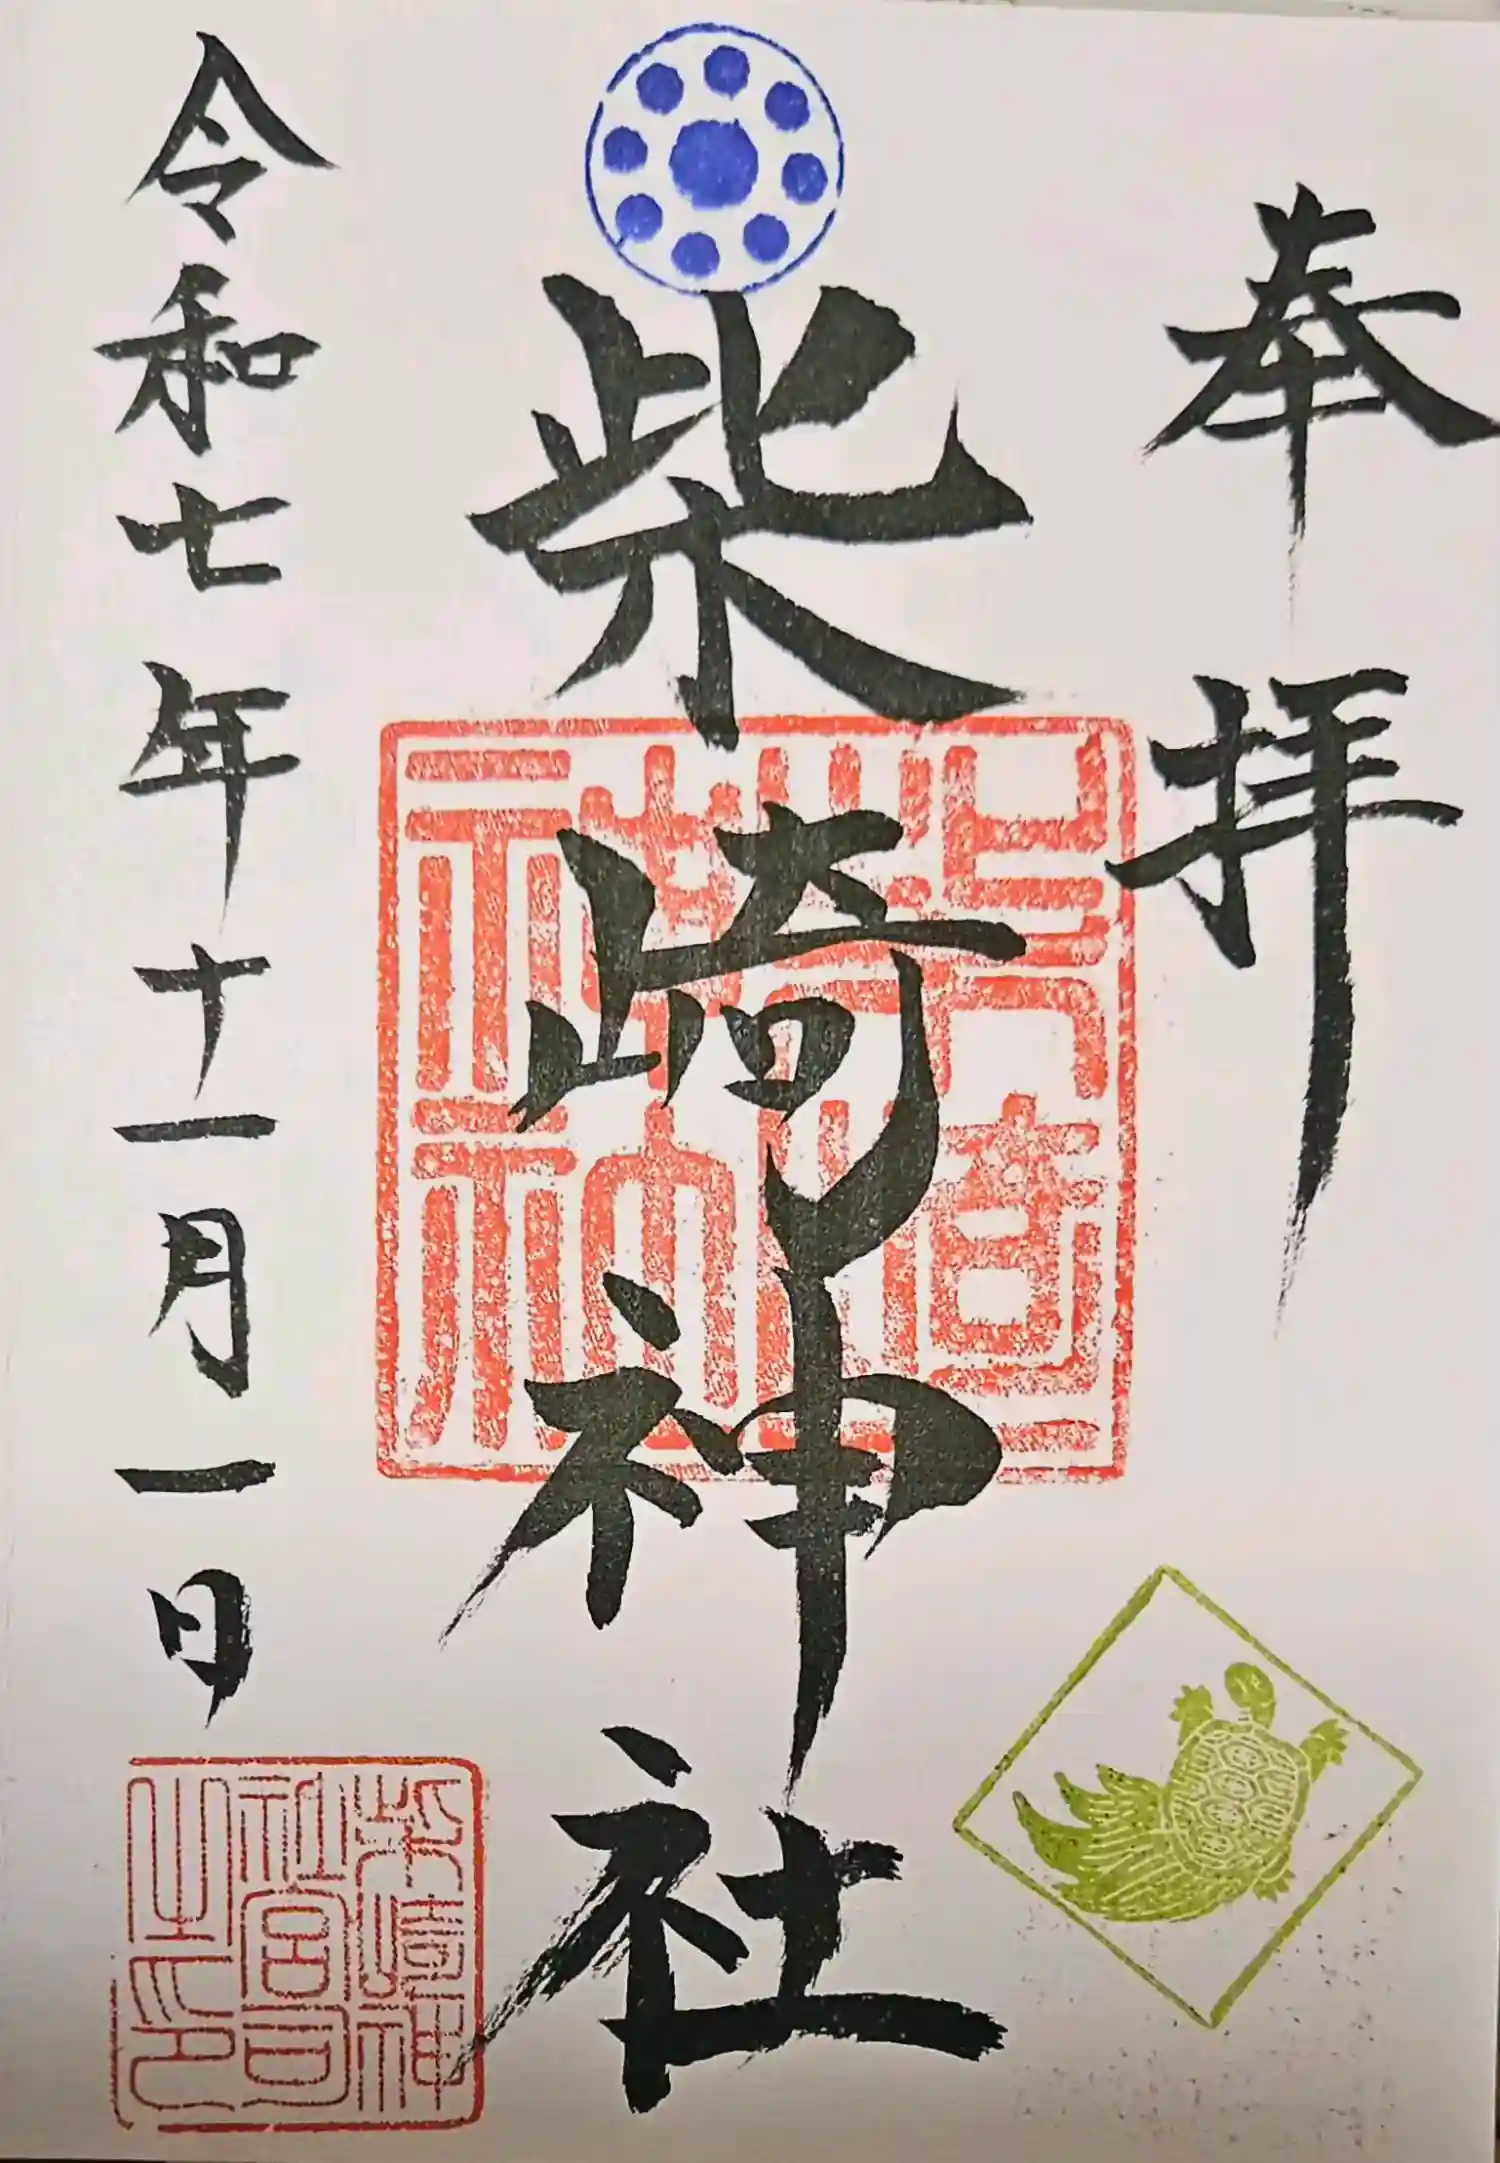 奉拝
柴崎神社
令和七年十一月一日
柴崎神社
柴崎神社宮司之印